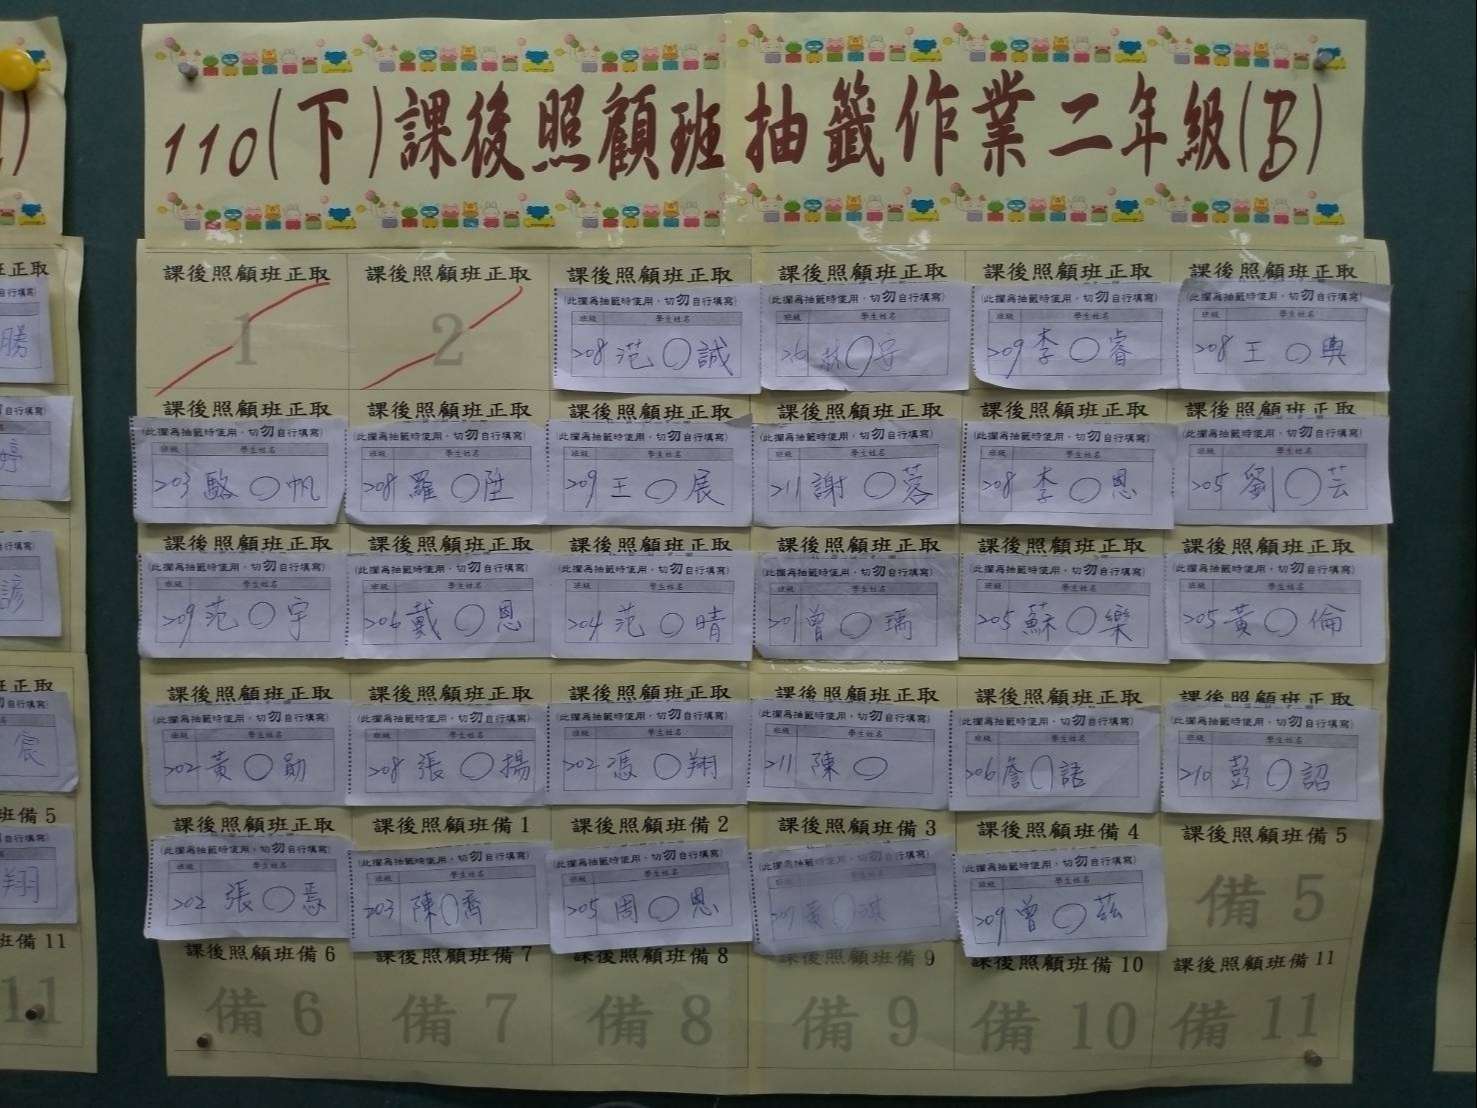 110(下)課後照顧班抽籤作業二年級(B)
課後照顧班正取 課後照顧班正取 課後照顧班正取 課後照顧班正取 課後照顧班正取 課後照顧班正取
1 2
(此欄為抽籤時使用,切勿自行填寫) (此欄為抽籤時使用,切勿自行填寫) (此欄為抽籤時使用,切勿自行填寫) (此欄為抽籤時使用,切勿自行填寫)
班級 學生姓名 班級 學生姓名 班級 學生姓名 班級 學生姓名
208 范○誠 林○宇 209 李○睿 208 王○興
課後照顧班正取 課後照顧班正取 課後照顧班正取 課後照顧班正取 課後照顧班正取 課後照顧班正取
(此欄為抽籤時使用,切勿自行填寫) (此欄為抽籤時使用,切勿自行填寫) (此欄為抽籤時使用,切勿自行填寫) (此欄為抽籤時使用,切勿自行填寫) (此欄為抽籤時使用,切勿自行填寫) (此欄為抽籤時使用,切勿自行填寫)
班級 學生姓名 班級 學生姓名 班級 學生姓名 班級 學生姓名 班級 學生姓名 班級 學生姓名
203 駱○帆 208 羅○陞 209 王○展 211 謝○蓉 208 李○恩 205 劉○芸
課後照顧班正取 課後照顧班正取 課後照顧班正取 課後照顧班正取 課後照顧班正取 課後照顧班正取
(此欄為抽籤時使用,切勿自行填寫) (此欄為抽籤時使用,切勿自行填寫) (此欄為抽籤時使用,切勿自行填寫) (此欄為抽籤時使用,切勿自行填寫) (此欄為抽籤時使用,切勿自行填寫) (此欄為抽籤時使用,切勿自行填寫)
班級 學生姓名 班級 學生姓名 班級 學生姓名 班級 學生姓名 班級 學生姓名 班級 學生姓名
209 范○宇 206 戴○恩 204 范○晴 201 曾○瑀 205 蘇○樂 205 黃○倫
課後照顧班正取 課後照顧班正取 課後照顧班正取 課後照顧班正取 課後照顧班正取 課後照顧班正取
(此欄為抽籤時使用,切勿自行填寫) (此欄為抽籤時使用,切勿自行填寫) (此欄為抽籤時使用,切勿自行填寫) (此欄為抽籤時使用,切勿自行填寫) (此欄為抽籤時使用,切勿自行填寫) (此欄為抽籤時使用,切勿自行填寫)
班級 學生姓名 班級 學生姓名 班級 學生姓名 班級 學生姓名 班級 學生姓名 班級 學生姓名
202 黃○勛 208 張○揚 202 馮○翔 211 陳○ 206 詹○語 210 彭○詔
課後照顧班正取 課後照顧班備1 課後照顧班備2 課後照顧班備3 課後照顧班備4 課後照顧班備5
(此欄為抽籤時使用,切勿自行填寫) (此欄為抽籤時使用,切勿自行填寫) (此欄為抽籤時使用,切勿自行填寫) (此欄為抽籤時使用,切勿自行填寫) (此欄為抽籤時使用,切勿自行填寫) 備 5
班級 學生姓名 班級 學生姓名 班級 學生姓名 班級 學生姓名 班級 學生姓名
202 張○ 203 陳○喬 205 周○恩 ○淇 209 曾○茲
課後照顧班備6 課後照顧班備7 課後照顧班備8 課後照顧班備9 課後照顧班備10 課後照顧班備11
備 6 備 7 備 8 備 9 備 10 備 11